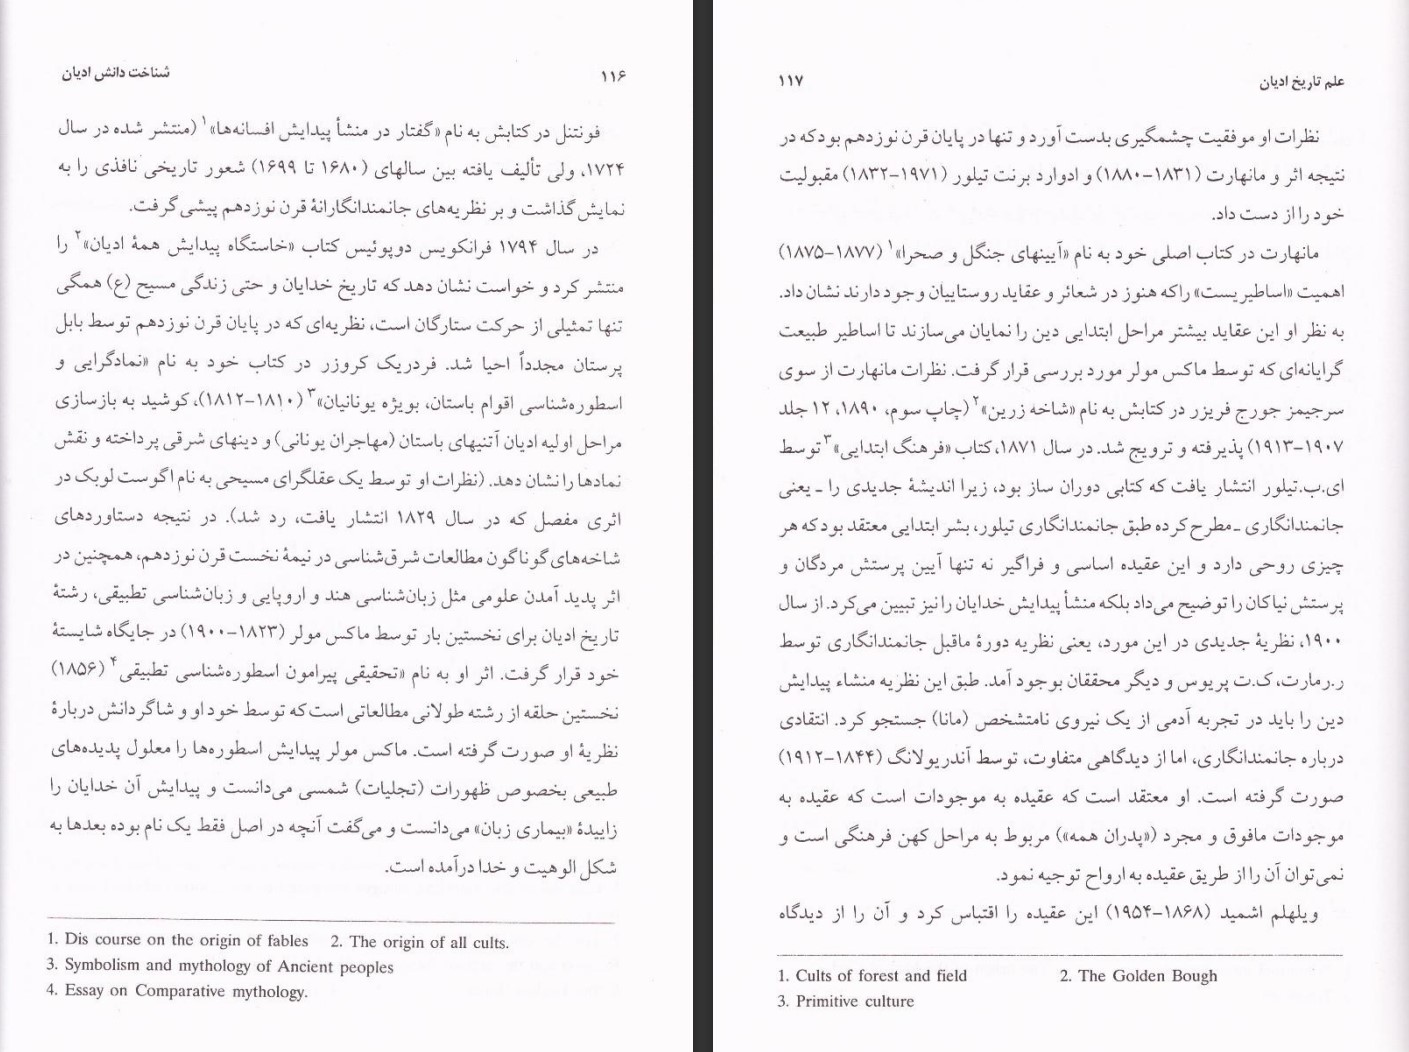 شناخت دانش ادیان
۱۱۶
فونتنل در کتابش به نام «گفتار در منشأ پیدایش افسانه‌ها»۱ (منتشر شده در سال
۱۷۲۴، ولی تألیف یافته بین سالهای (۱۶۸۰ تا ۱۶۹۹) شعور تاریخی نافذی را به
نمایش گذاشت و بر نظریه‌های جانمندانگارانهٔ قرن نوزدهم پیشی گرفت.
در سال ۱۷۹۴ فرانکویس دوپوئیس کتاب «خاستگاه پیدایش همهٔ ادیان»۲ را
منتشر کرد و خواست نشان دهد که تاریخ خدایان و حتی زندگی مسیح (ع) همگی
تنها تمثیلی از حرکت ستارگان است، نظریه‌ای که در پایان قرن نوزدهم توسط بابل
پرستان مجدداً احیا شد. فردریک کروزر در کتاب خود به نام «نمادگرایی و
اسطوره‌شناسی اقوام باستان، بویژه یونانیان»۳ (۱۸۱۰-۱۸۱۲)، کوشید به بازسازی
مراحل اولیه ادیان آتنیهای باستان (مهاجران یونانی) و دینهای شرقی پرداخته و نقش
نمادها را نشان دهد. (نظرات او توسط یک عقلگرای مسیحی به نام اگوست لوبک در
اثری مفصل که در سال ۱۸۲۹ انتشار یافت، رد شد). در نتیجه دستاوردهای
شاخه‌های گوناگون مطالعات شرق‌شناسی در نیمهٔ نخست قرن نوزدهم، همچنین در
اثر پدید آمدن علومی مثل زبان‌شناسی هند و اروپایی و زبان‌شناسی تطبیقی، رشتهٔ
تاریخ ادیان برای نخستین بار توسط ماکس مولر (۱۸۲۳-۱۹۰۰) در جایگاه شایستهٔ
خود قرار گرفت. اثر او به نام «تحقیقی پیرامون اسطوره‌شناسی تطبیقی۴ (۱۸۵۶)
نخستین حلقه از رشته طولانی مطالعاتی است که توسط خود او و شاگردانش دربارهٔ
نظریهٔ او صورت گرفته است. ماکس مولر پیدایش اسطوره‌ها را معلول پدیده‌های
طبیعی بخصوص ظهورات (تجلیات) شمسی می‌دانست و پیدایش آن خدایان را
زاییدهٔ «بیماری زبان» می‌دانست و می‌گفت آنچه در اصل فقط یک نام بوده بعدها به
شکل الوهیت و خدا درآمده است.
1. Dis course on the origin of fables 2. The origin of all cults.
3. Symbolism and mythology of Ancient peoples
4. Essay on Comparative mythology.
علم تاریخ ادیان
۱۱۷
نظرات او موفقیت چشمگیری بدست آورد و تنها در پایان قرن نوزدهم بود که در
نتیجه اثر و مانهارت (۱۸۳۱-۱۸۸۰) و ادوارد برنت تیلور (۱۹۷۱-۱۸۳۲) مقبولیت
خود را از دست داد.
مانهارت در کتاب اصلی خود به نام «آیینهای جنگل و صحرا»۱ (۱۸۷۷-۱۸۷۵)
اهمیت «اساطیریست» را که هنوز در شعائر و عقاید روستاییان وجود دارند نشان داد.
به نظر او این عقاید بیشتر مراحل ابتدایی دین را نمایان می‌سازند تا اساطیر طبیعت
گرایانه‌ای که توسط ماکس مولر مورد بررسی قرار گرفت. نظرات مانهارت از سوی
سرجیمز جورج فریزر در کتابش به نام «شاخه زرین»۲ (چاپ سوم، ۱۸۹۰، ۱۲ جلد
۱۹۰۷-۱۹۱۳) پذیرفته و ترویج شد. در سال ۱۸۷۱، کتاب «فرهنگ ابتدایی»۳ توسط
ای.ب.تیلور انتشار یافت که کتابی دوران ساز بود، زیرا اندیشهٔ جدیدی را ـ یعنی
جانمندانگاری ـ مطرح کرده طبق جانمندانگاری تیلور، بشر ابتدایی معتقد بود که هر
چیزی روحی دارد و این عقیده اساسی و فراگیر نه تنها آیین پرستش مردگان و
پرستش نیاکان را توضیح می‌داد بلکه منشأ پیدایش خدایان را نیز تبیین می‌کرد. از سال
۱۹۰۰، نظریهٔ جدیدی در این مورد، یعنی نظریه دورهٔ ماقبل جانمندانگاری توسط
ر.رمارت، ک.ت پریوس و دیگر محققان بوجود آمد. طبق این نظریه منشاء پیدایش
دین را باید در تجربه آدمی از یک نیروی نامتشخص (مانا) جستجو کرد. انتقادی
درباره جانمندانگاری، اما از دیدگاهی متفاوت، توسط آندریولانگ (۱۸۴۴-۱۹۱۲)
صورت گرفته است. او معتقد است که عقیده به موجودات است که عقیده به
موجودات مافوق و مجرد («پدران همه») مربوط به مراحل کهن فرهنگی است و
نمی‌توان آن را از طریق عقیده به ارواح توجیه نمود.
ویلهلم اشمید (۱۸۶۸-۱۹۵۴) این عقیده را اقتباس کرد و آن را از دیدگاه
1. Cults of forest and field 2. The Golden Bough
3. Primitive culture